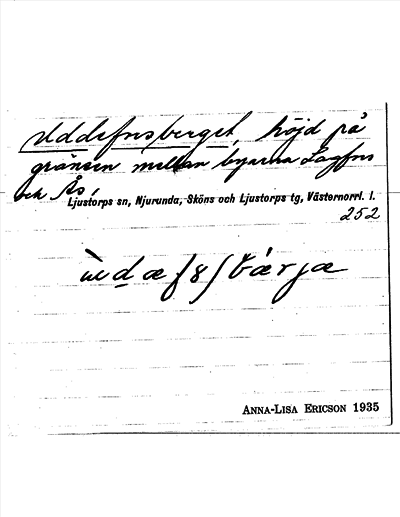 Uddeforsberget, höjd på
gränsen mellan byarna Lagfors
och Ås,
Ljustorps sn, Njurunda, Sköns och Ljustorps tg, Västernorrl. l.
252
ANNA-LISA ERICSON 1935